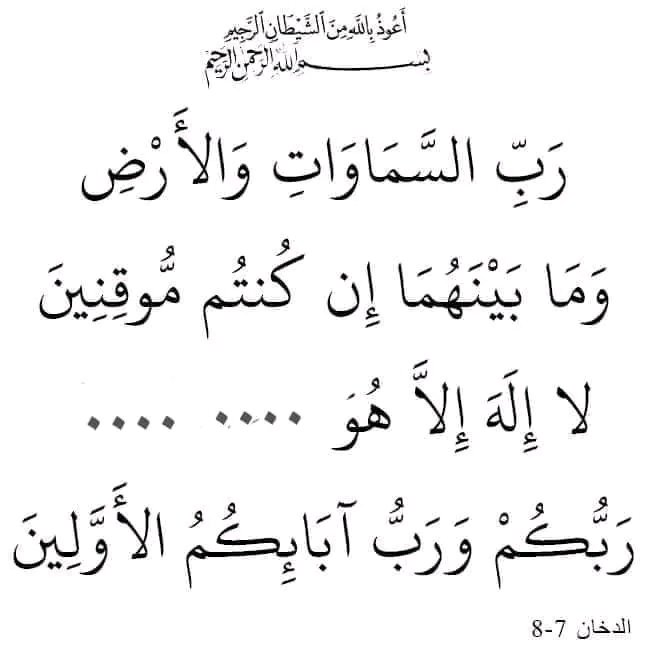 أَعُوذُ بِاللَّهِ مِنَ الشَّيْطَانِ الرَّجِيمِ
بِسْمِ اللَّهِ الرَّحْمَنِ الرَّحِيمِ
رَبِّ السَّمَاوَاتِ وَالأَرْضِ
وَمَا بَيْنَهُمَا إِن كُنتُم مُّوقِنِينَ
لا إِلَهَ إِلاَّ هُوَ .... ....
رَبُّكُمْ وَرَبُّ آبَائِكُمُ الأَوَّلِينَ
الدخان 7-8